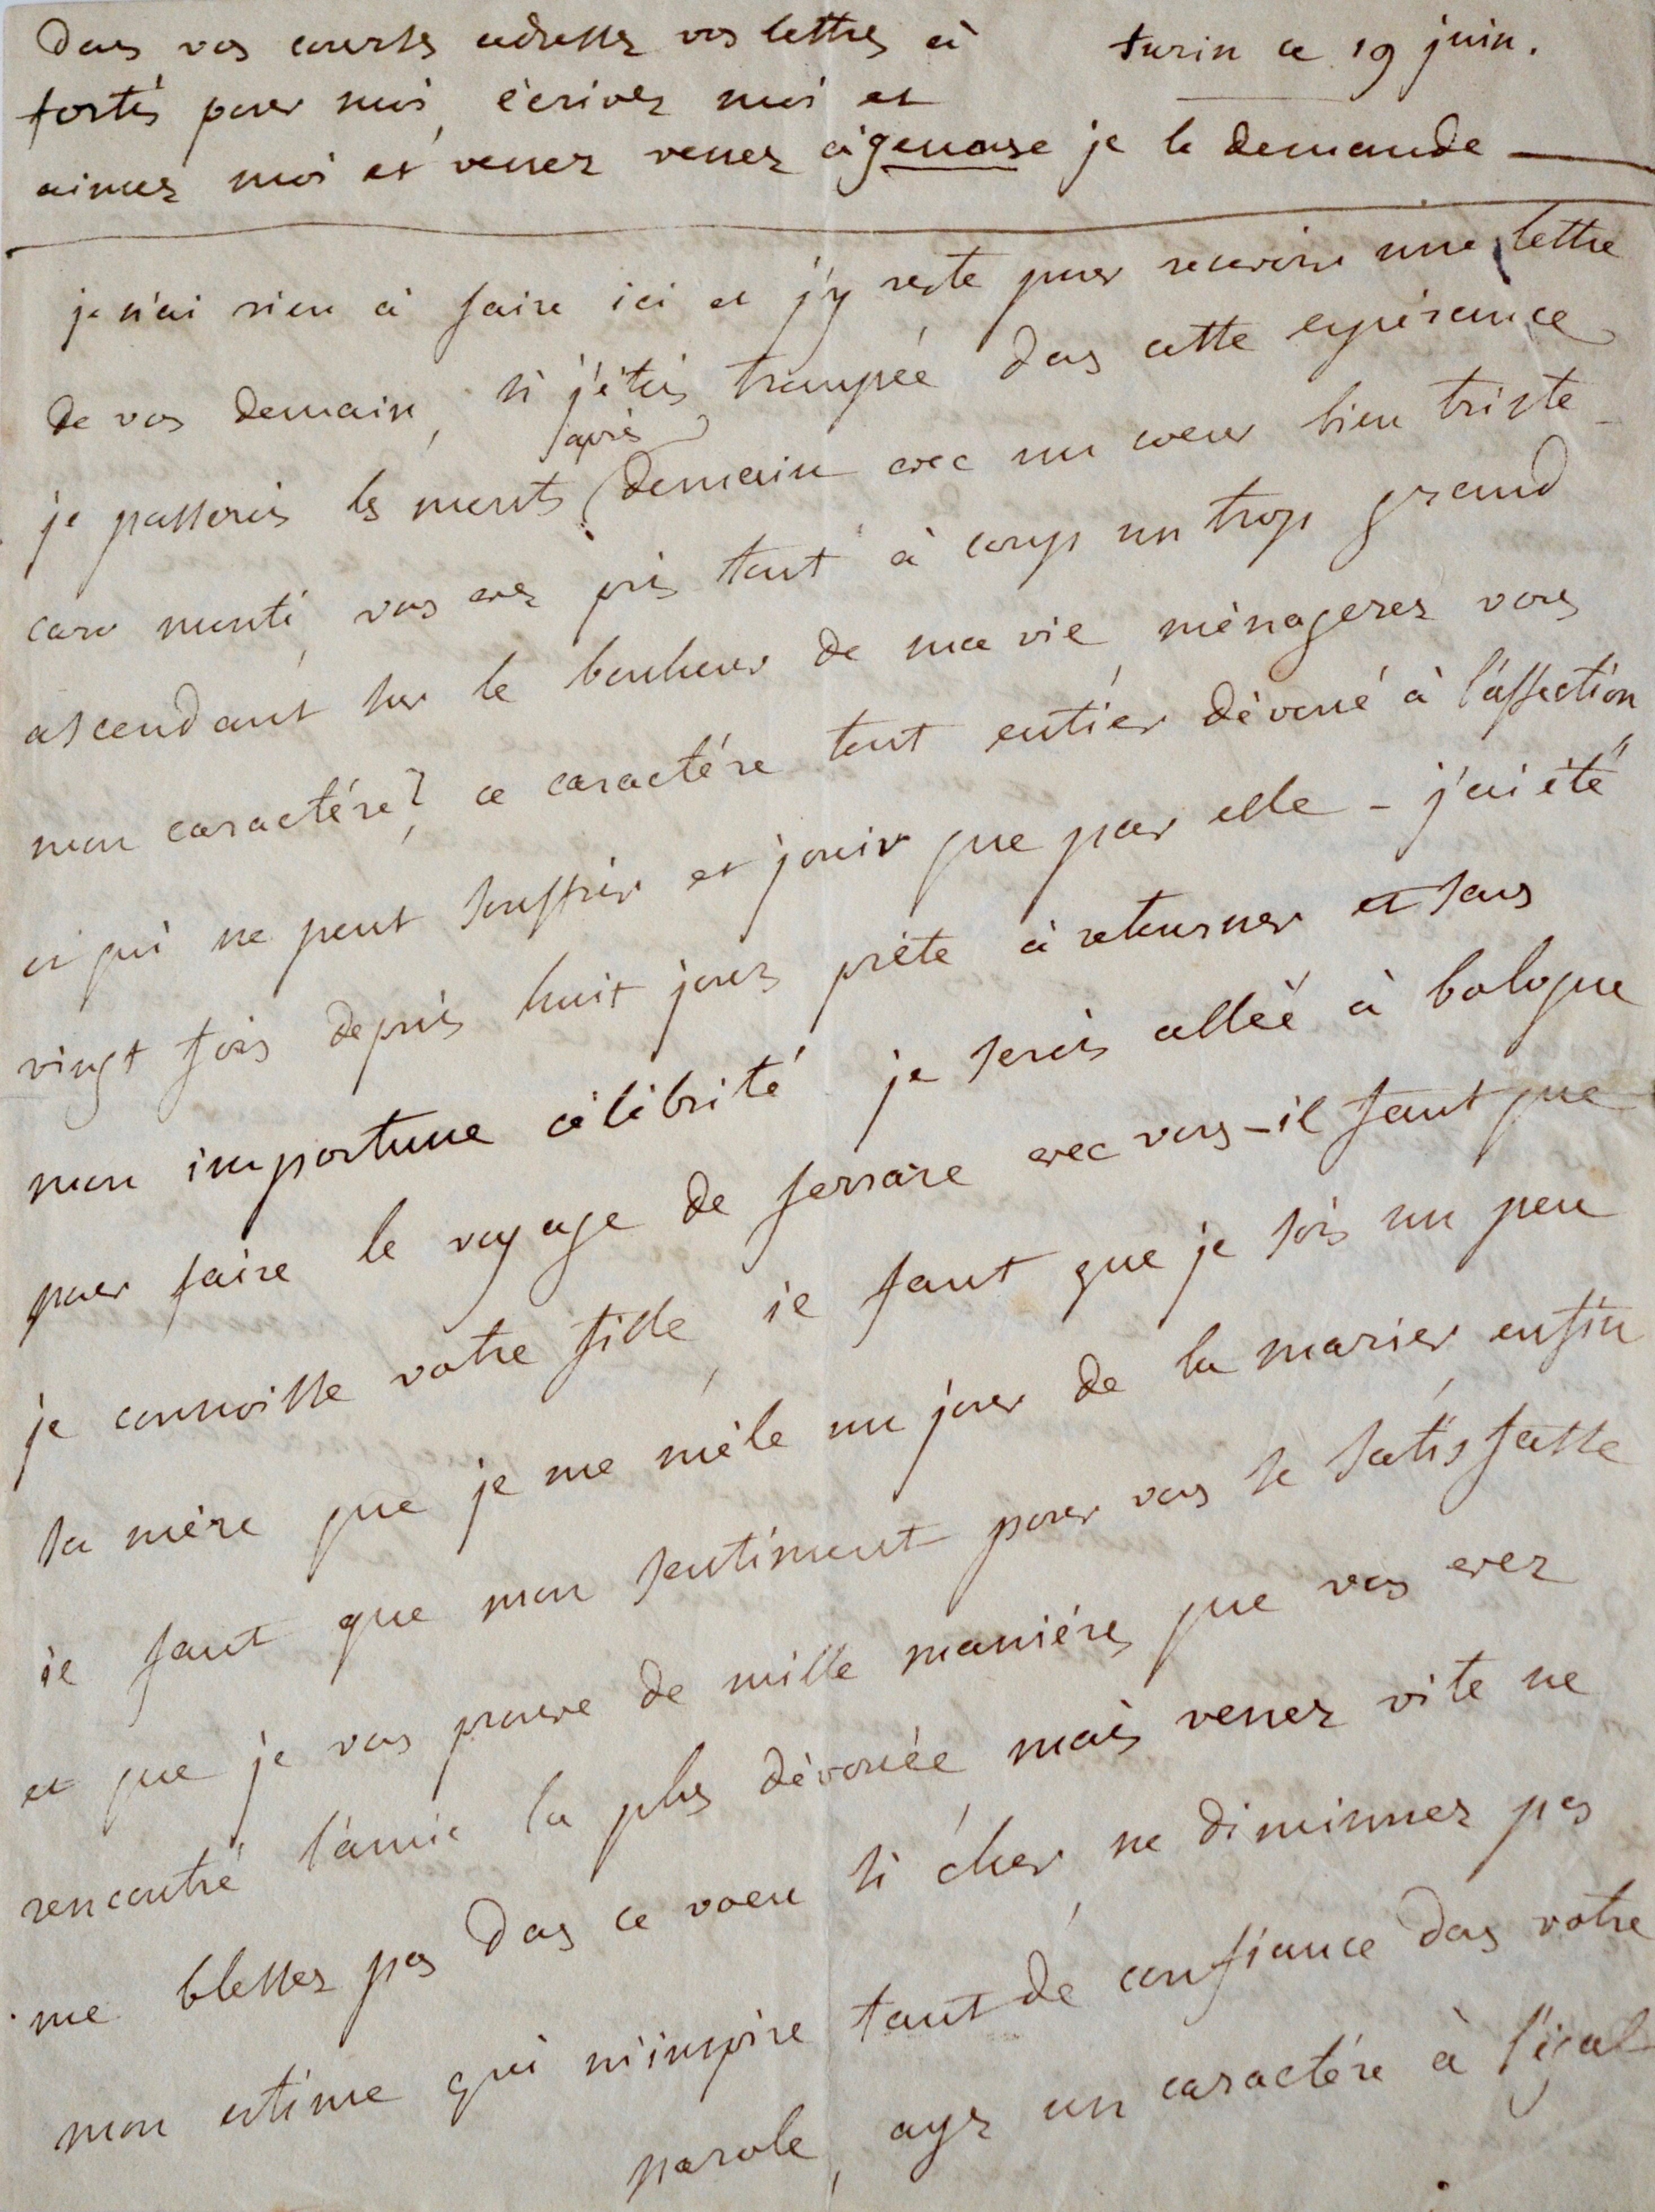 Dans vos courses adressez vos lettres à
turin ce 19 juin.
fortis pour moi, écrivez moi et
aimez moi et venez venez à genève je le demande —
je n'ai rien à faire ici et j'y reste pour recevoir une lettre
de vos demain, si j'étais trompée dans cette espérance
je passerois les monts après demain avec un coeur bien triste -
caro monti, vous avez pris tout à coup un trop grand
ascendant sur le bonheur de ma vie, ménagerez vous
mon caractére? ce caractére tout entier dévoué à l'affection
et qui ne peut souffrir et jouir que par elle - j'ai été
vingt fois depuis huit jours prête à retourner et sans
mon importune célébrité je serois alleé à bologne
pour faire le voyage de ferrare avec vous - il faut que
je connoisse votre fille, il faut que je sois un peu
sa mère que je me mêle un jour de la marier enfin
il faut que mon sentiment pour vous se satisfasse
et que je vous prouve de mille maniéres que vous avez
rencontré l'amie la plus dévouée, mais venez vite ne
me blessez pas dans ce voeu si cher, ne diminuez pas
mon estime qui m'inspire tant de confiance dans votre
parole, ayez un caractére à l'égal